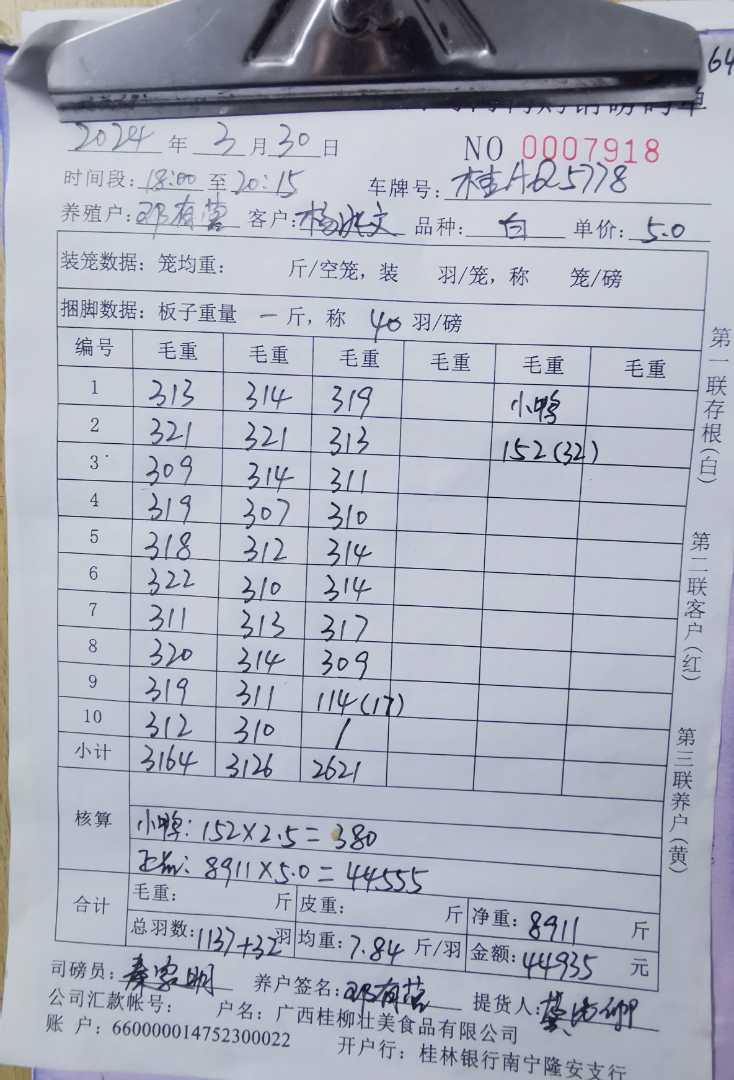 64
2024 年 3 月 30 日 NO 0007918
时间段: 18:00 至 20:15 车牌号: 桂AQ5778
养殖户: 邓有营 客户: 杨洪文 品种: 白 单价: 5.0
装笼数据: 笼均重: 斤/空笼, 装 羽/笼, 称 笼/磅
捆脚数据: 板子重量 一 斤, 称 40 羽/磅
编号 毛重 毛重 毛重 毛重 毛重 毛重
1 313 314 319 小鸭
2 321 321 313 152(32)
3 309 314 311
4 319 307 310
5 318 312 314
6 322 310 314
7 311 313 317
8 320 314 309
9 319 311 114(17)
10 312 310 /
小计 3164 3126 2621
核算
小鸭: 152×2.5=380
正品: 8911×5.0=44555
合计 毛重: 斤 皮重: 斤 净重: 8911 斤
总羽数: 1137+32 羽 均重: 7.84 斤/羽 金额: 44935 元
司磅员: 养户签名: 邓有营 提货人:
公司汇款帐号: 户名: 广西桂柳壮美食品有限公司
账 户: 660000014752300022 开户行: 桂林银行南宁隆安支行
第一联存根(白)
第二联客户(红)
第三联养户(黄)